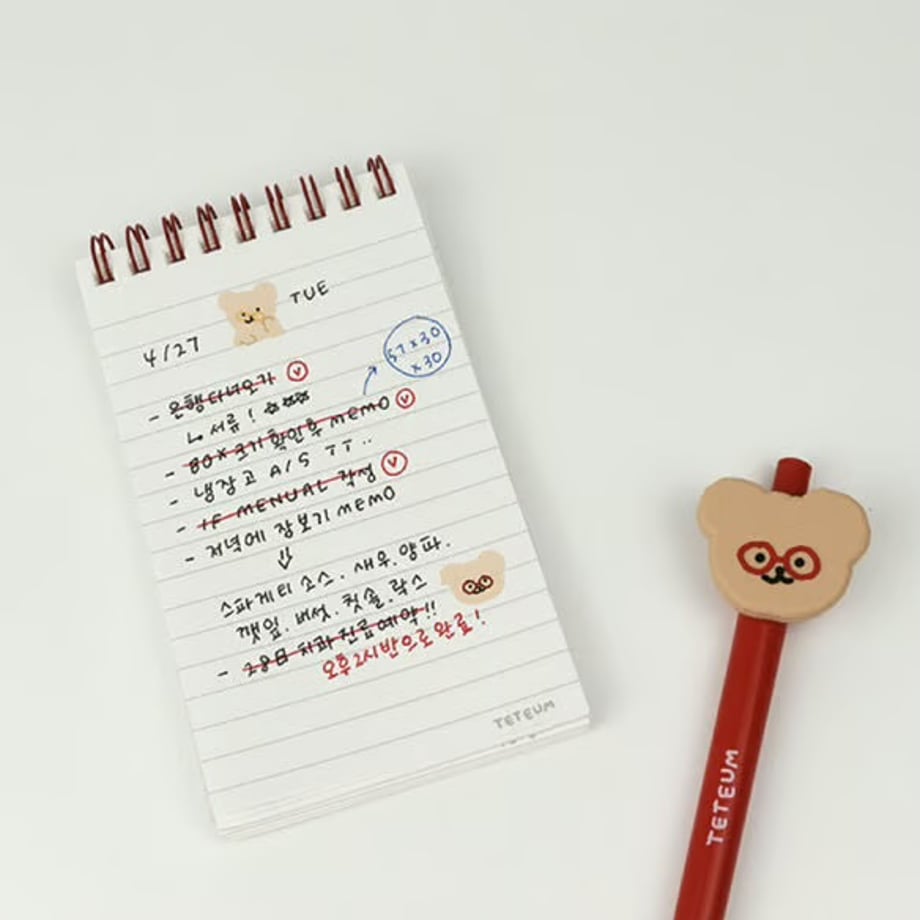 4/27 TUE
- 은행 다녀오기 V
↳ 서류! ☆☆☆
57x30
x30
- BOX 크기 확인후 MEMO V
- 냉장고 A/S TT..
- IF MENUAL 작성 V
- 저녁에 장보기 MEMO
⇓
스파게티 소스. 새우. 양파.
깻잎. 버섯. 칫솔. 락스
- 28日 치과진료예약!!
오후 2시반으로 완료!
TETEUM
TETEUM